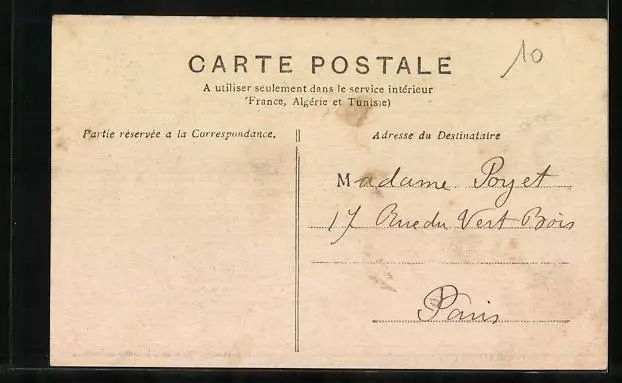 10
CARTE POSTALE
A utiliser seulement dans le service intérieur
(France, Algérie et Tunisie)
Partie réservée a la Correspondance.
Adresse du Destinataire
Madame Poyet
17 Rue du Vert Bois
Paris